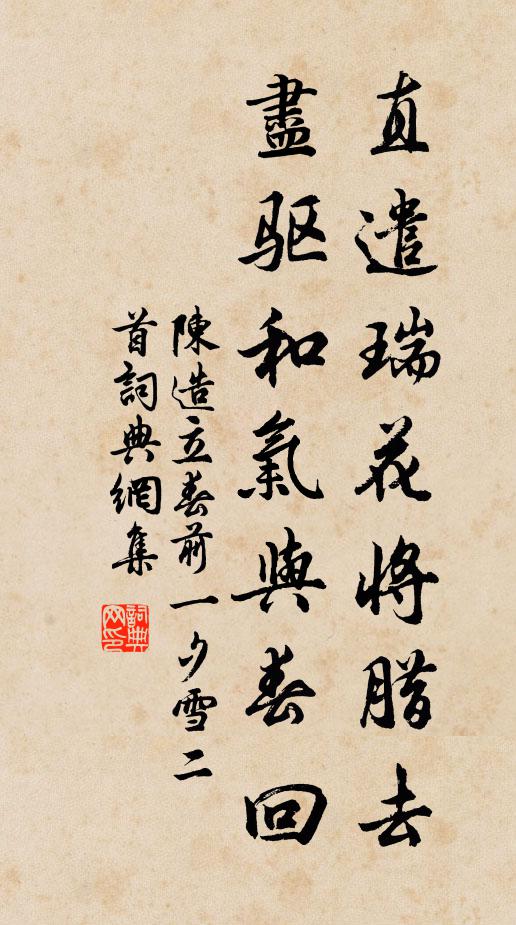 直遣瑞花將腊去
盡驱和氣與春回
陳造立春前一夕雪二
首詞典網集
詞典
网印